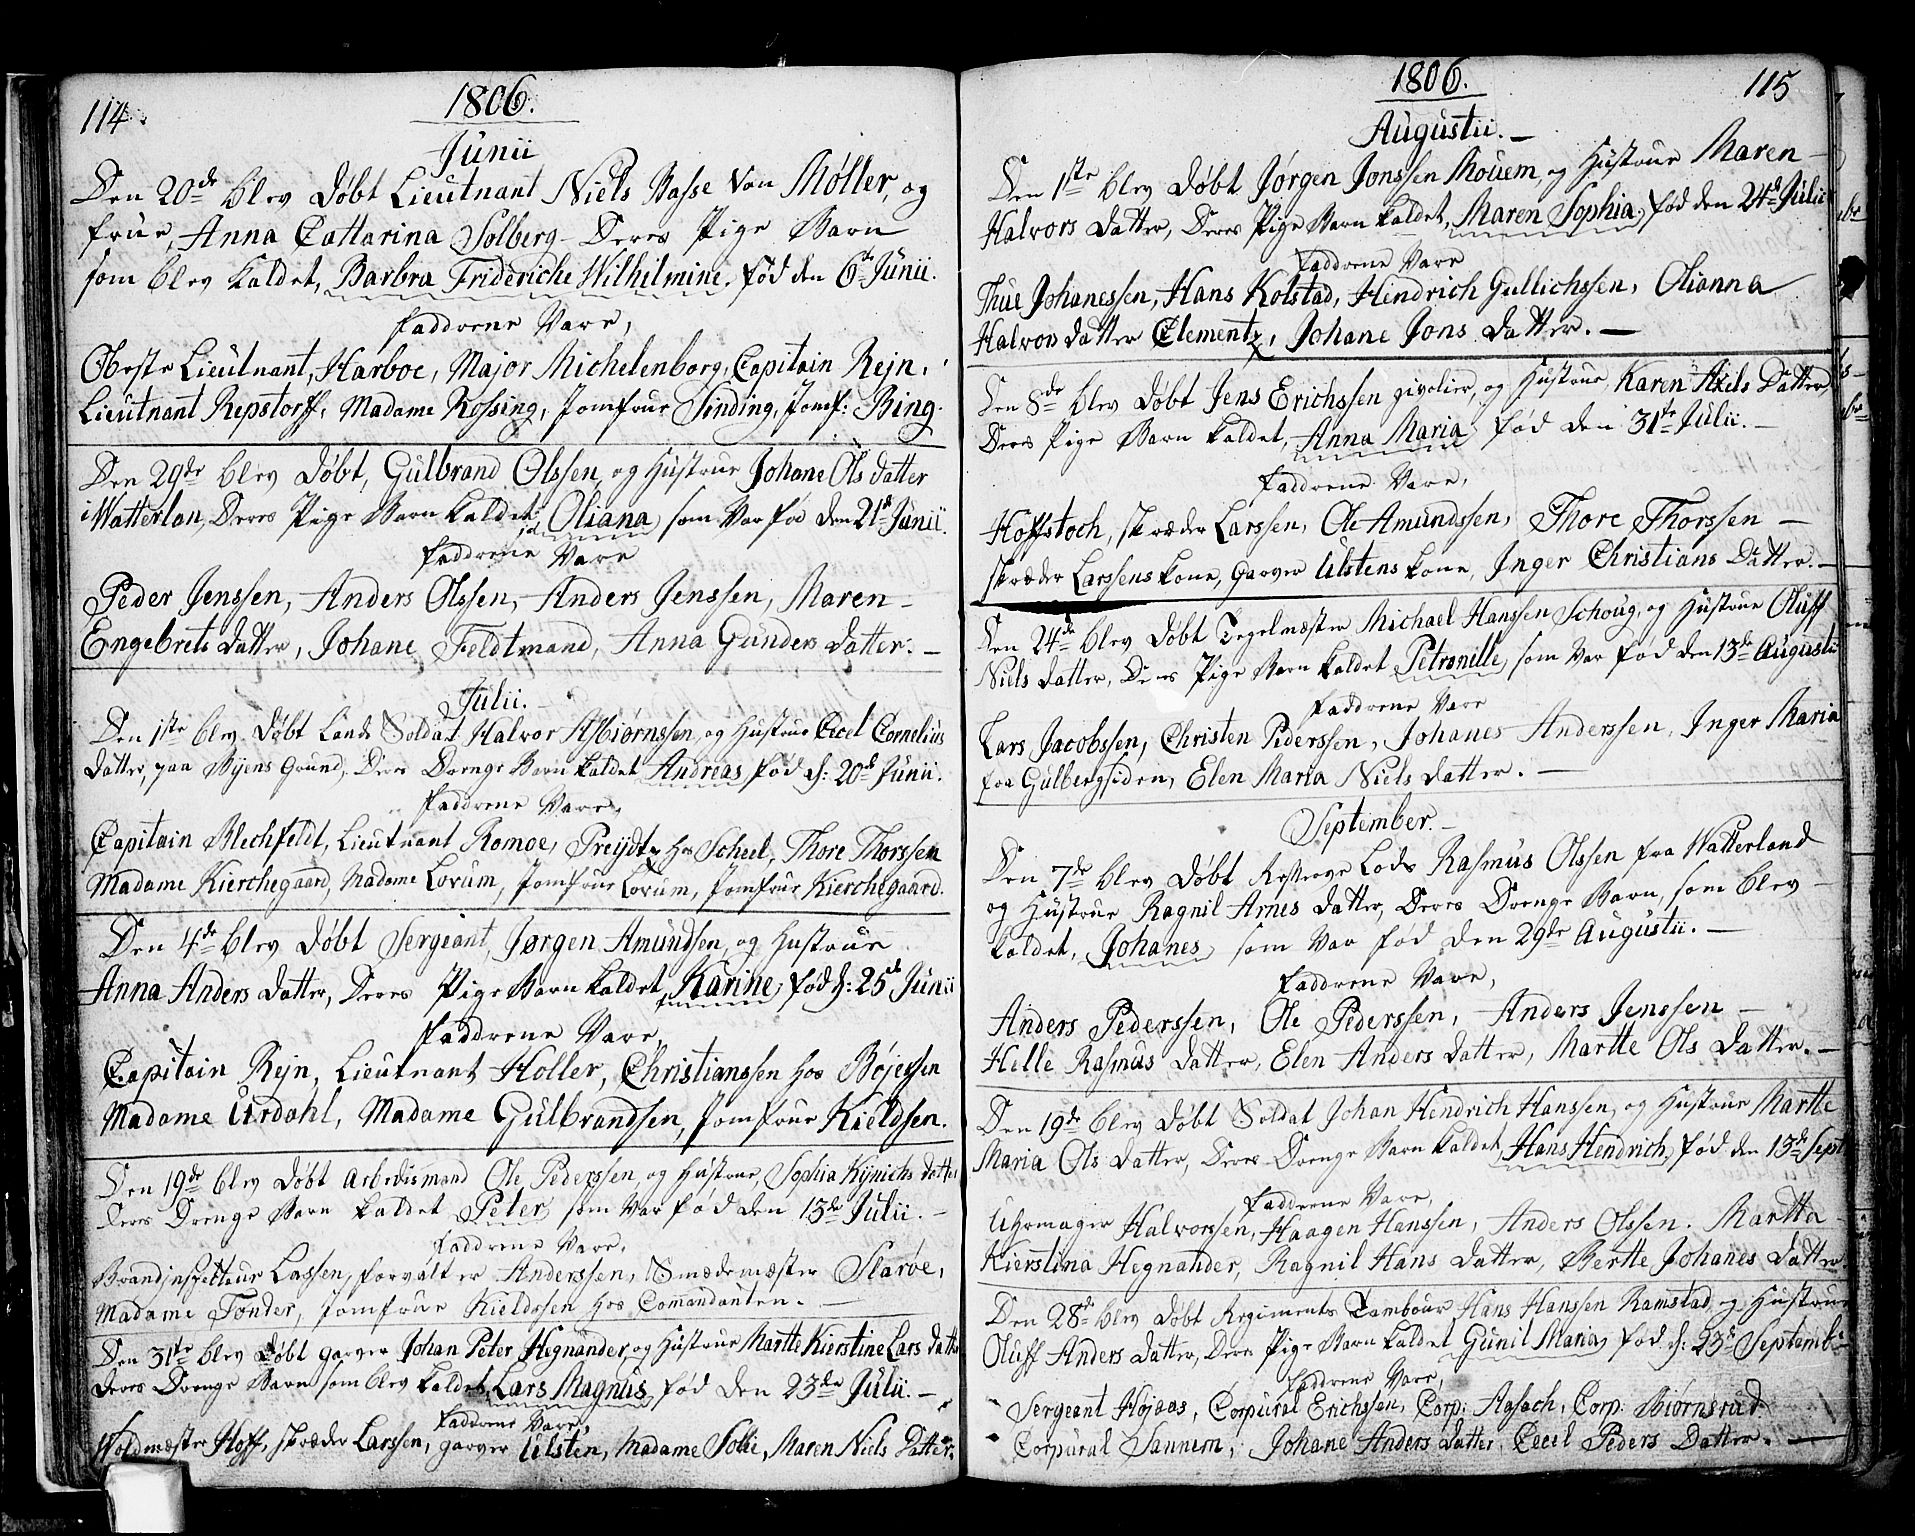 114.
1806.
Junii
Den 20de blev Døbt Lieutnant Niels Basse Von Møller, og
frue, Anna Cattarina Solberg - Deres Pige Barn
som blev kaldet, Barbra Frideriche Wilhilmine, fød den 6te Junii.
Faddrene Vare,
Oberste Lieutnant, Harboe, Major Michelenborg, Capitain Rejn,
Lieutnant Repstorff, Madame Rossing, Jomfrue Sinding, Jomf: Bing.
Den 29de blev Døbt, Gulbrand Olssen, og Hustrue Johane Ols Datter
i Watterlan, Deres Pige Barn kaldet Oliana, som Var fød den 21de Junii.
Faddrene Vare
Peder Jenssen, Anders Olssen, Anders Jenssen, Maren -
Engebrets Datter, Johane Feldtmand, Anna Gunders Datter. -
Julii. -
Den 1ste blev Døbt Land Soldat Halvor Asbiørnssen, og Hustrue Cicel Cornelius
Datter, paa Byens Grund, Deres Drenge Barn kaldet Andreas fød d: 20de Junii.
Faddrene Vare,
Capitain Blechfeldt, Lieutnant Romoe, Preydtz hos Scheel, Thore Thorssen
Madame Kierchegaard, Madame Lorum, Jomfrue Lorum, Jomfrue Kierchegaard.
Den 4de blev Døbt Sergeant, Jørgen Amundsen, og Hustrue
Anna Anders Datter, Deres Pige Barn kaldet Karine, fød d: 25de Junii
Faddrene Vare,
Capitain Rejn, Lieutnant Holler, Christianssen hos Bøjessen
Madame Urdahl, Madame Gulbrandsen, Jomfrue Kieldsen.
Den 19de blev Døbt Arbedismand Ole Pederssen, og Hustrue, Sophia Kynichs Datter
Deres Drenge Barn kaldet Peter, som Var fød den 13de Julii. -
Faddrene Vare,
Brandinspecteur Lassen, forvalter Anderssen, Smædemæster Slarøe,
Madame Tønder, Jomfrue Kieldssen hos Comandanten. -
Den 31te blev Døbt Garver Johan Peter Hegnander, og Hustrue Martte Kierstine Lars Datter
Deres Drenge Barn som blev kaldet, Lars Magnus, fød den 23de Julii. -
Faddrene Vare,
Woldmæster Hoff, Skræder Larssen, Garver Ulsten, Madame Solie, Maren Niels Datter.
1806.
115
Augustii. -
Den 1ste blev Døbt Jørgen Jonssen Mouem, og Hustrue Maren -
Halvors Datter, Deres Pige Barn kaldet, Maren Sophia, fød den 24de Julii
Faddrene Vare
Thue Johanessen, Hans Kolstad, Hindrich Gullichssen, Olianna
Halvors Datter Clementz, Johane Jons Datter. -
Den 8de blev Døbt Jens Erichssen givolier, og Hustrue, Karen Axels Datter,
Deres Pige Barn kaldet, Anna Maria, fød den 31te Julii. -
Faddrene Vare,
Hoffstoch, Skræder Larssen, Ole Amundssen, Thore Thorssen -
Skræder Larssens kone, Garver Ulstens kone, Inger Christians Datter. -
Den 24de blev Døbt Tegelmæster Michael Hanssen Schoug, og Hustrue Oluff
Niels Datter, Deres Pige Barn kaldet Petronille, som Var fød den 13de Augustii
Faddrene Vare
Lars Jacobssen, Christen Pederssen, Johanes Anderssen, Inger Maria
fra Gulbergsiden, Elen Maria Niels Datter. -
September. -
Den 7de blev Døbt Lods Rasmus Olssen fra Watterland
og Hustrue Ragnil Arnes Datter, Deres Drenge Barn, som blev -
kaldet, Johanes, som Var fød den 29de Augustii. -
Faddrene Vare,
Anders Pederssen, Ole Pederssen, Anders Jenssen -
Helle Rasmus Datter, Elen Anders Datter, Martte Ols Datter. -
Den 19de blev Døbt Soldat Johan Hendrich Hanssen, og Hustrue Martte
Maria Ols Datter, Deres Drenge Barn kaldet, Hans Hendrich, fød den 13de Sept
Faddrene Vare,
Uhrmager Halvorssen, Haagen Hanssen, Anders Olssen. Martta
Kierstina Hegnander, Ragnil Hans Datter, Bertte Johanes Datter.
Den 28de blev Døbt Regiments Tambour Hans Hanssen Ramstad, og Hustrue
Oluff Anders Datter, Deres Pige Barn kaldet Gunil Maria, fød d: 23de Septemb:
Faddrene Vare,
Sergeant Højaas, Corpural Erichssen, Corp: Aasach, Corp: Biørnsrud
Corpural Sannem, Johane Anders Datter, Cecel Peders Datter. -